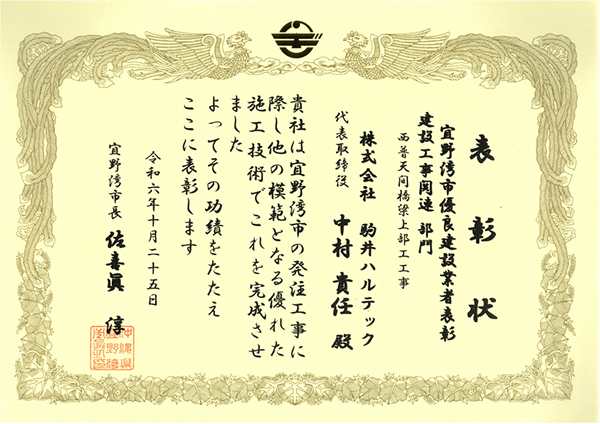 表彰状
宜野湾市優良建設業者表彰
建設工事関連 部門
西普天間橋梁上部工工事
株式会社 駒井ハルテック
代表取締役 中村 貴任 殿
貴社は宜野湾市の発注工事に
際し他の模範となる優れた
施工技術でこれを完成させ
ました
よってその功績をたたえ
ここに表彰します
令和六年十月二十五日
宜野湾市長 佐喜眞 淳